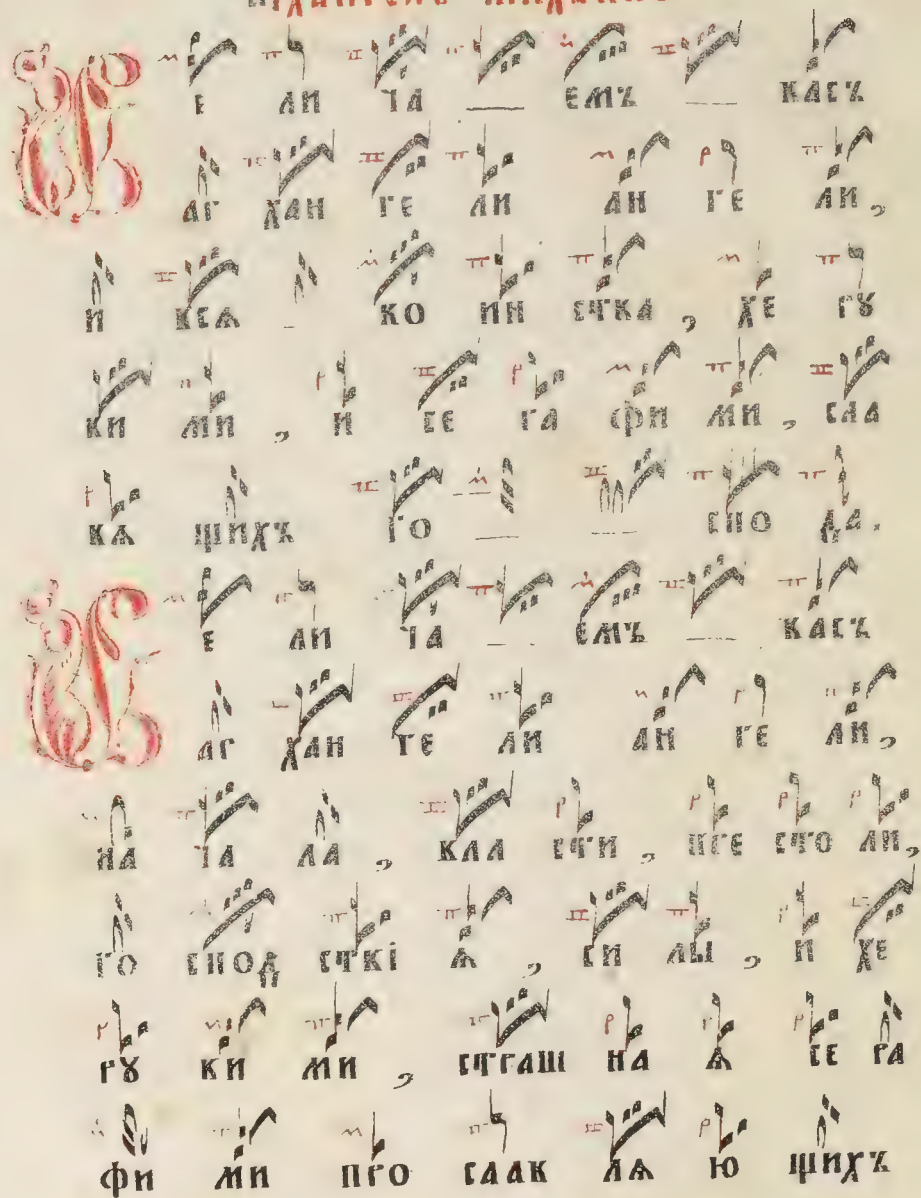 В е ли ча — емъ — васъ
ар хан ге ли ан ге ли,
и всѧ - во ин ства, хе рꙋ
ви ми, и се ра фи ми, сла
вѧ щихъ го — — спо да.
В е ли ча — емъ — васъ
ар хан ге ли ан ге ли,
на ча ла, вла сти, пре сто ли,
го спод стві ѧ, си лы, и хе
рꙋ ви ми, страш на ѧ се ра
фи ми про слав лѧ ю щихъ